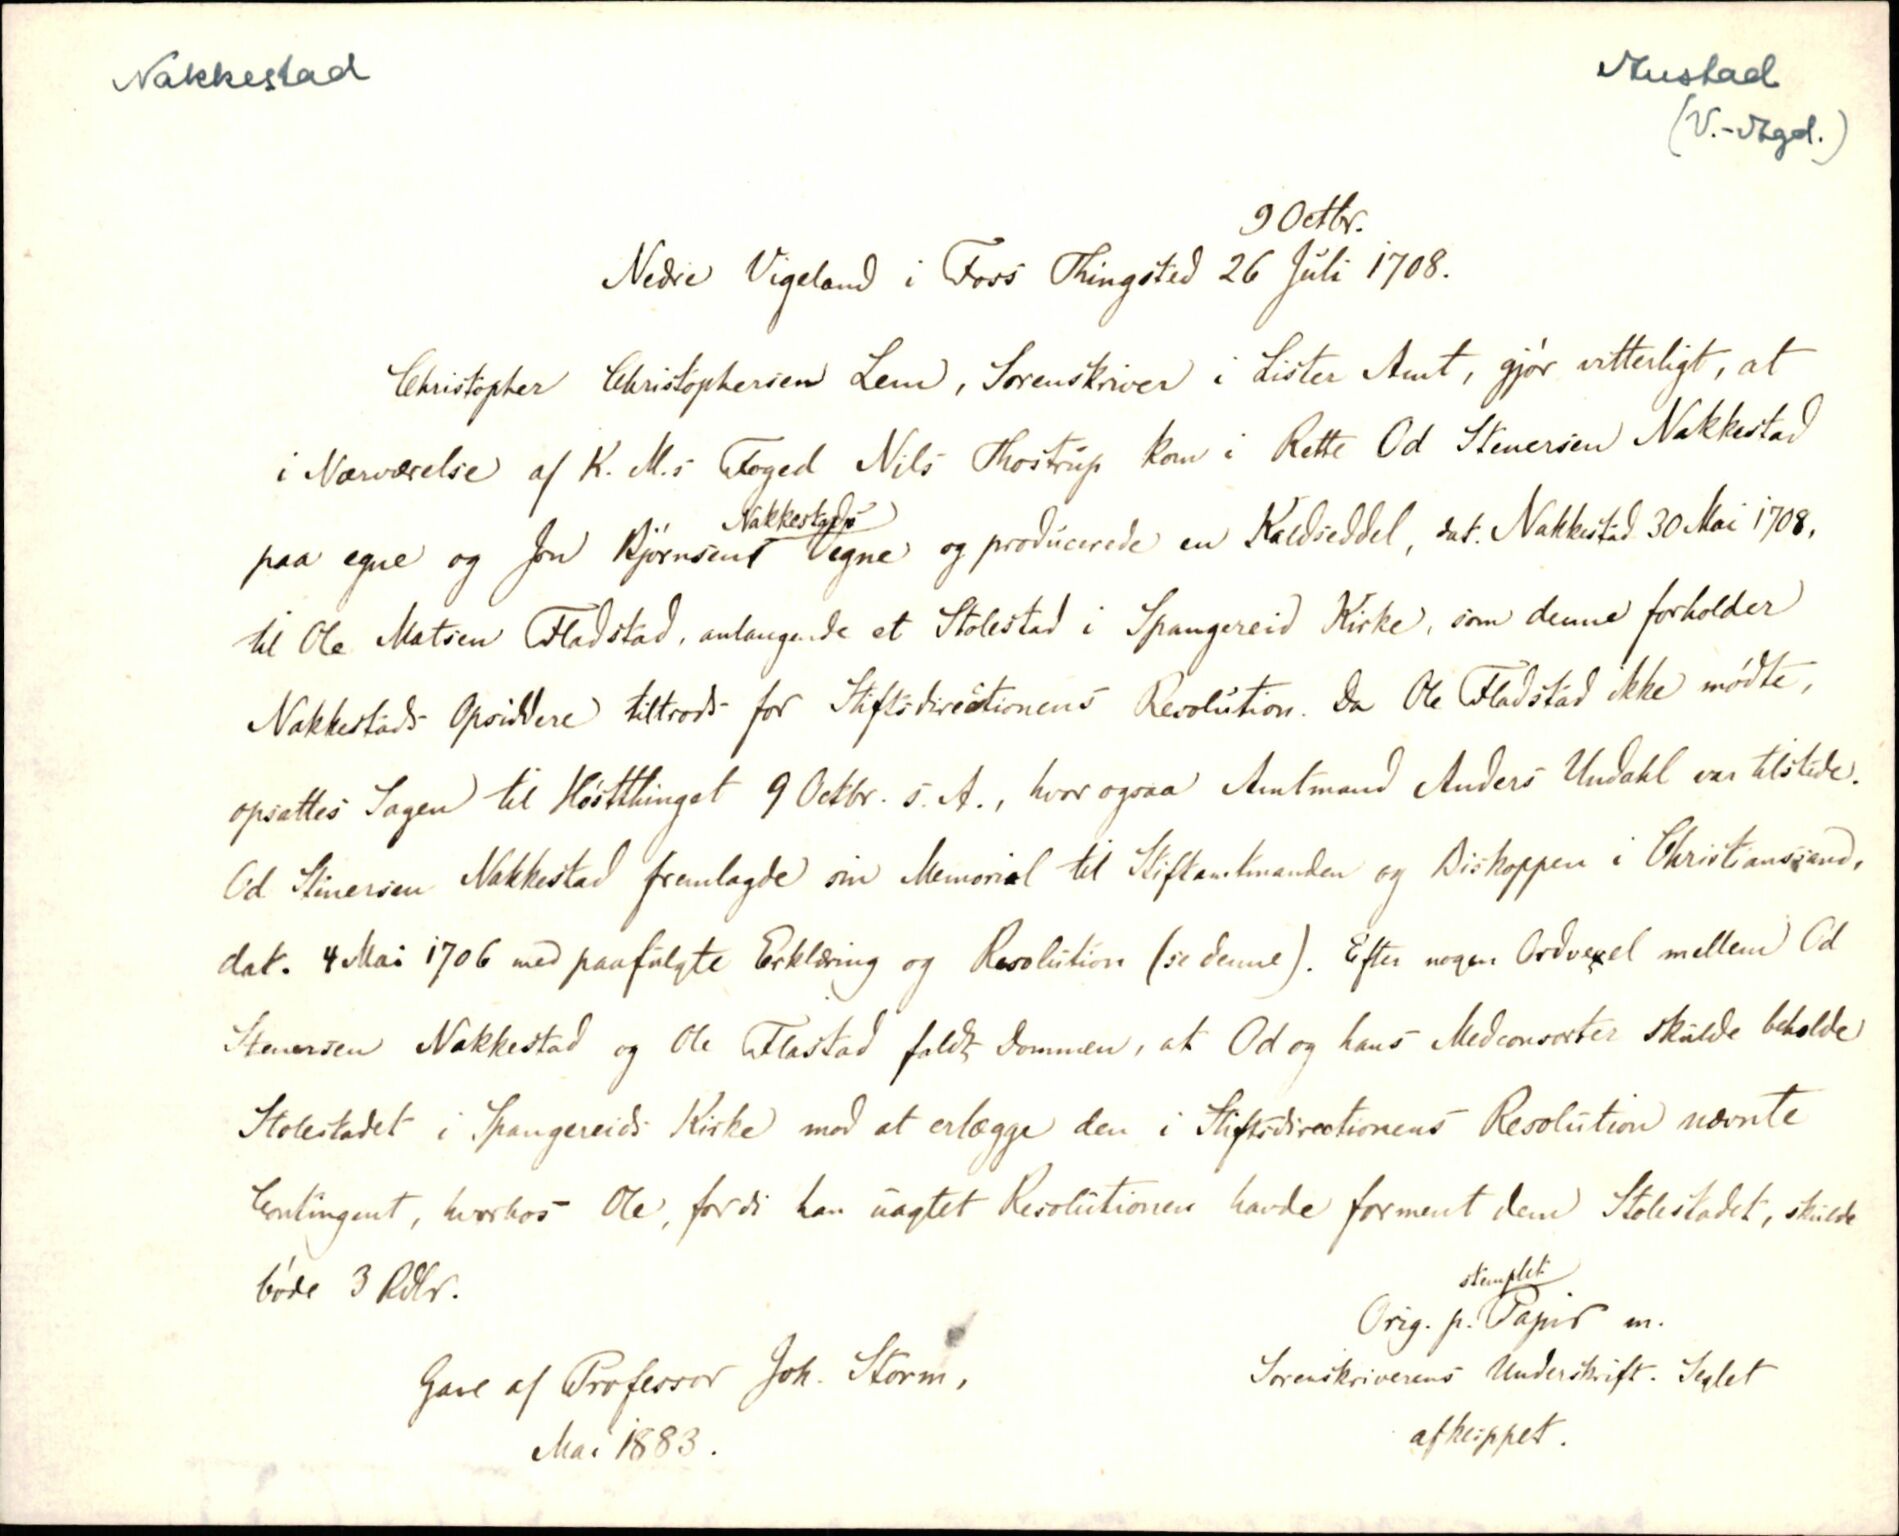 Nakkestad
Austad
(V.-Agd.)
9 Octbr.
Nedre Vigeland i Foss Thingsted 26 Juli 1708.
Christopher Christophersen Lem, Sorenskriver i Lister Amt, gjør vitterligt, at
i Nærværelse af K. M.s Foged Nils Thostrup kom i Rette Od Stenersen Nakkestad
Nakkestads
paa egne og Jon Bjørnsens Vegne og producerede en Kaldseddel, dat. Nakkestad 30 Mai 1708,
til Ole Matsen Fladstad, anlangende et Stolestad i Spangereid Kirke, som denne forholder
Nakkestads Opsiddere tiltrods for Stiftsdirectionens Resolution. Da Ole Fladstad ikke mødte,
opsattes Sagen til Høstthinget 9 Octbr. s. A., hvor ogsaa Amtmand Anders Undahl var tilstede.
Od Stenersen Nakkestad fremlagde sin Memorial til Stiftamtmanden og Biskoppen i Christianssand,
dat. 4 Mai 1706 med paafulgte Erklæring og Resolution (se denne). Efter nogen Ordvexel mellem Od
Stenersen Nakkestad og Ole Flastad faldt Dommen, at Od og hans Medconsorter skulde beholde
Stolestadet i Spangereids Kirke mod at erlægge den i Stiftsdirectionens Resolution nævnte
Contingent, hvorhos Ole, fordi han uagtet Resolutionen havde forment dem Stolestadet, skulde
bøde 3 Rdlr.
stemplet
Orig. p. Papir m.
Sorenskriverens Underskrift. Seglet
afklippet.
Gave af Professor Joh. Storm,
Mai 1883.